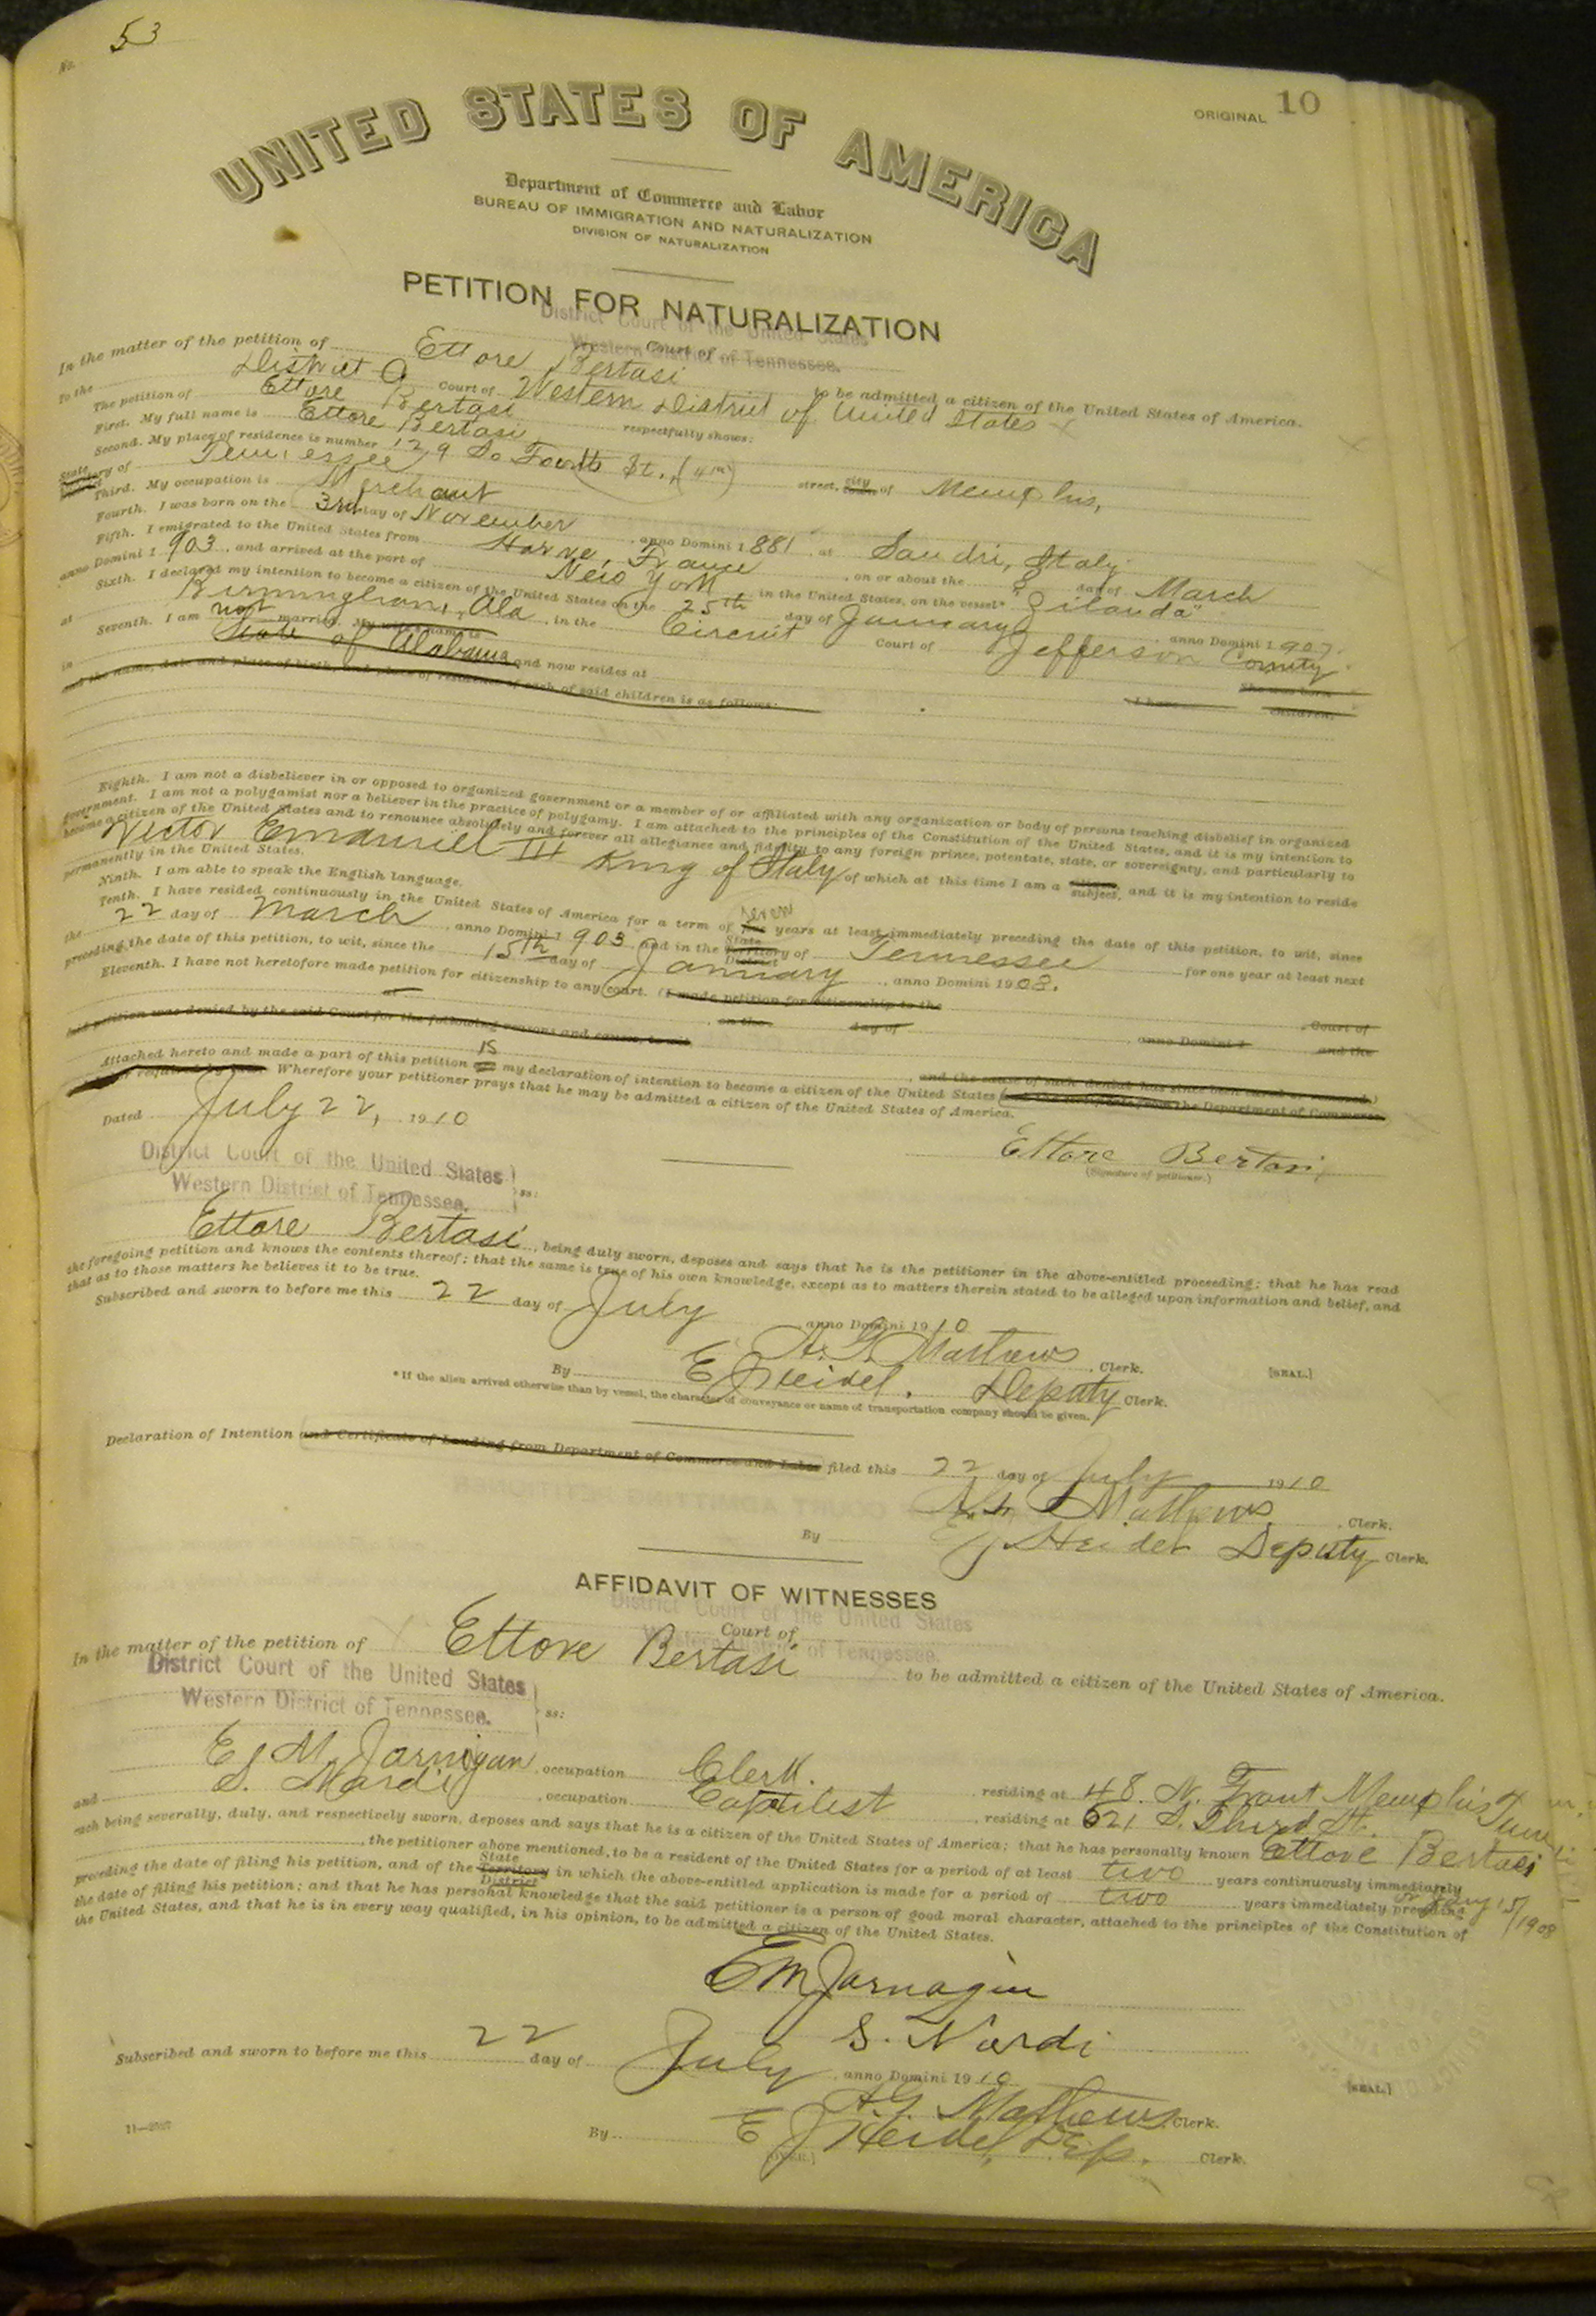 No. 53
ORIGINAL 10
UNITED STATES OF AMERICA
Department of Commerce and Labor
BUREAU OF IMMIGRATION AND NATURALIZATION
DIVISION OF NATURALIZATION
PETITION FOR NATURALIZATION
District Court of the United States
Court of
Western District of Tennessee.
In the matter of the petition of Ettore Bertasi to be admitted a citizen of the United States of America.
To the District Court of Western District of United States
The petition of Ettore Bertasi respectfully shows:
First. My full name is Ettore Bertasi
Second. My place of residence is number 129 So Fourth St., (4th) street, city of Memphis,
State of Tennessee
Third. My occupation is Merchant
Fourth. I was born on the 3rd day of November, anno Domini 1881, at Sandri, Italy
Fifth. I emigrated to the United States from Havre, France, on or about the day of March
anno Domini 1903, and arrived at the port of New York in the United States, on the vessel*
Sixth. I declared my intention to become a citizen of the United States on the 25th day of January, anno Domini 1907.
at Birmingham, Ala, in the Circuit Court of Jefferson County
Seventh. I am not married. My wife's name is She was born
in State of Alabama and now resides at I have children,
and the name, date and place of birth, and place of residence of each of said children is as follows:
Eighth. I am not a disbeliever in or opposed to organized government or a member of or affiliated with any organization or body of persons teaching disbelief in organized
government. I am not a polygamist nor a believer in the practice of polygamy. I am attached to the principles of the Constitution of the United States, and it is my intention to
become a citizen of the United States and to renounce absolutely and forever all allegiance and fidelity to any foreign prince, potentate, state, or sovereignty, and particularly to
Victor Emanuel III King of Italy of which at this time I am a subject, and it is my intention to reside
permanently in the United States.
Ninth. I am able to speak the English language.
Tenth. I have resided continuously in the United States of America for a term of seven years at least immediately preceding the date of this petition, to wit, since
the 22 day of March, anno Domini 1903, and in the State Territory District of Tennessee for one year at least next
preceding the date of this petition, to wit, since the 15th day of January, anno Domini 1908.
Eleventh. I have not heretofore made petition for citizenship to any court. (I made petition for citizenship to the Court of
at, on the day of, anno Domini 1 and the
said petition was denied by the said Court for the following reasons and causes, to wit, and the cause of such denial has since been cured or removed.)
Attached hereto and made a part of this petition is my declaration of intention to become a citizen of the United States (and the certificate from the Department of Commerce
and Labor required by law. Wherefore your petitioner prays that he may be admitted a citizen of the United States of America.
Dated July 22, 1910
Ettore Bertasi
(Signature of petitioner.)
District Court of the United States
Western District of Tennessee. ss:
Ettore Bertasi, being duly sworn, deposes and says that he is the petitioner in the above-entitled proceeding; that he has read
the foregoing petition and knows the contents thereof; that the same is true of his own knowledge, except as to matters therein stated to be alleged upon information and belief, and
that as to those matters he believes it to be true.
Subscribed and sworn to before me this 22 day of July, anno Domini 1910
A. G. Matthews, Clerk. [SEAL.]
By E J Heidel. Deputy Clerk.
*If the alien arrived otherwise than by vessel, the character of conveyance or name of transportation company should be given.
Declaration of Intention and Certificate of Landing from Department of Commerce and Labor filed this 22 day of July 1910
A. G. Mathews, Clerk.
By E J Heidel Deputy Clerk.
AFFIDAVIT OF WITNESSES
District Court of the United States
Court of
Western District of Tennessee.
In the matter of the petition of Ettore Bertasi to be admitted a citizen of the United States of America.
District Court of the United States
Western District of Tennessee. ss:
E M Jarnigan, occupation Clerk. residing at 48. N. Front Memphis Tenn
and S. Nardi, occupation Capitalist, residing at 621 S. Third St.
each being severally, duly, and respectively sworn, deposes and says that he is a citizen of the United States of America; that he has personally known Ettore Bertasi
, the petitioner above mentioned, to be a resident of the United States for a period of at least two years continuously immediately
preceding the date of filing his petition, and of the State Territory District in which the above-entitled application is made for a period of two years immediately preceding
the date of filing his petition; and that he has personal knowledge that the said petitioner is a person of good moral character, attached to the principles of the Constitution of
the United States, and that he is in every way qualified, in his opinion, to be admitted a citizen of the United States.
E M Jarnagin
S. Nardi
Subscribed and sworn to before me this 22 day of July, anno Domini 1910
A. G. Mathews, Clerk. [SEAL.]
By E J Heidel, Dep. Clerk.